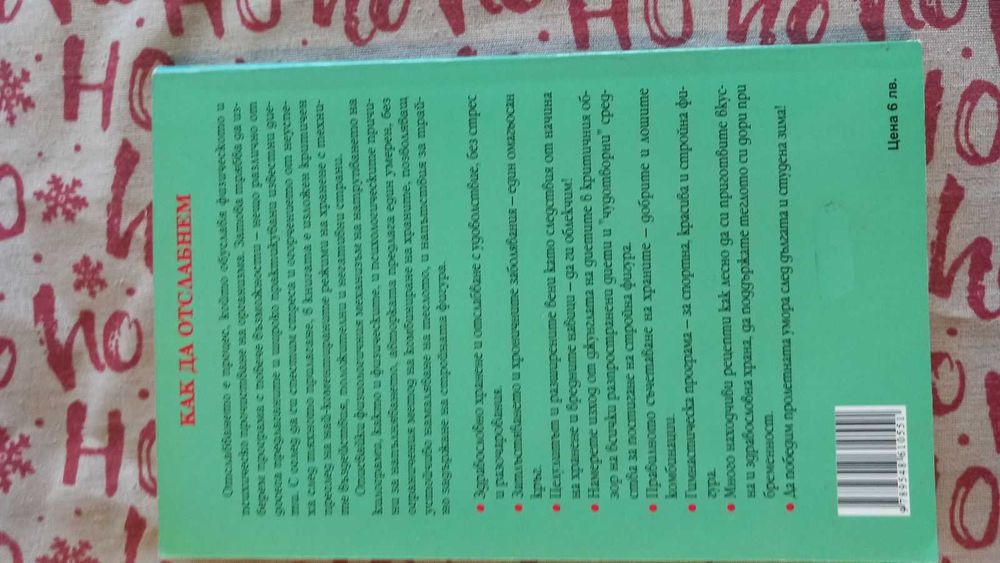 КАК ДА ОТСЛАБНЕМ
Отслабването е процес, който обуславя физическото и
психическо пречистване на организма. Затова трябва да из-
берем програма с повече възможности – нещо различно от
досега предлаганите и широко практикувани известни дие-
ти. С оглед да си спестим стреса и огорчението от неуспе-
ха след тяхното прилагане, в книгата е изложен критичен
преглед на най-коментираните режими на хранене с техни-
те въздействия, положителни и негативни страни.
Описвайки физиологичния механизъм на натрупването на
килограми, както и физическите, и психологическите причи-
ни за напълняването, авторката предлага един умерен, без
ограничения метод на комбиниране на храните, позволяващ
устойчиво намаляване на теглото, и напътствия за трай-
но задържане на стройната фигура.
• Здравословно хранене и отслабване с удоволствие, без стрес
и разочарования.
• Затлъстяването и хроничните заболявания – един омагьосан
кръг.
• Целулитът и разширените вени като следствия от начина
на хранене и вредните навици – да ги обикнем!
• Намерете изход от джунглата на диетите в критичния об-
зор на всички разпространени диети и "чудотворни" сред-
ства за постигане на стройна фигура.
• Правилното съчетаване на храните – добрите и лошите
комбинации.
• Гимнастическа програма – за спортна, красива и стройна фи-
гура.
• Много находчиви рецепти как лесно да си приготвите вкус-
на и здравословна храна, да поддържате теглото си дори при
бременност.
• Да победим пролетната умора след дългата и студена зима!
9789548610551
Цена 6 лв.